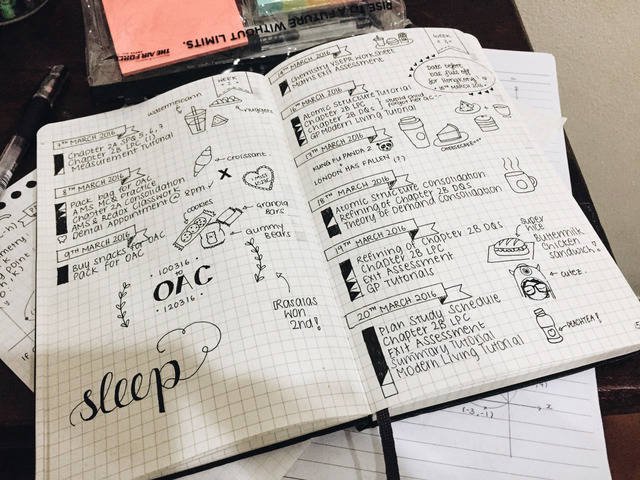 RISE TO A FUTURE WITHOUT LIMITS.
THE AIR FORCE
WEEK
watermelaonn
nuggets
7TH MARCH 2016
Chapter 2A SPQ 5, 6, 7
Chapter 2B LPC (?)
Measurement Tutorial
croissant
8TH MARCH 2016
Pack bag for OAC
AMS MC & Practice
AMS & Redox Classwork
Dental Appointment 8pm
cookies
granola
bars
gummy
bears
9TH MARCH 2016
Buy snacks for OAC
Pack for OAC
100316
to
OAC
120316
(Rasaias
won
2nd!
sleep
14TH MARCH 2016
Chemistry VSEPR Worksheet
Maths Exit Assessment
WEEK
Date before
bae flies off
for Hongkong
15TH MARCH 2016
16TH MARCH 2016
Atomic Structure Tutorial
Chapter 2B LPC
Chapter 2B DQs
GP Modern Living Tutorial
cheesecake
17TH MARCH 2016
KUNG FU PANDA
LONDON HAS FALLEN (?)
18TH MARCH 2016
Atomic Structure Consolidation
Refining of Chapter 2B DQs
Theory of Demand Consolidation
19TH MARCH 2016
Refining of Chapter 2B DQs
Chapter 2B LPC
Exit Assessment
GP Tutorials
super
nice
Buttermilk
chicken
sandwich
cutez.
20TH MARCH 2016
Plan Study Schedule
Chapter 2B LPC
Exit Assessment
Summary Tutorial
Modern Living Tutorial
PEACHTEA!
(-3,-1)
x